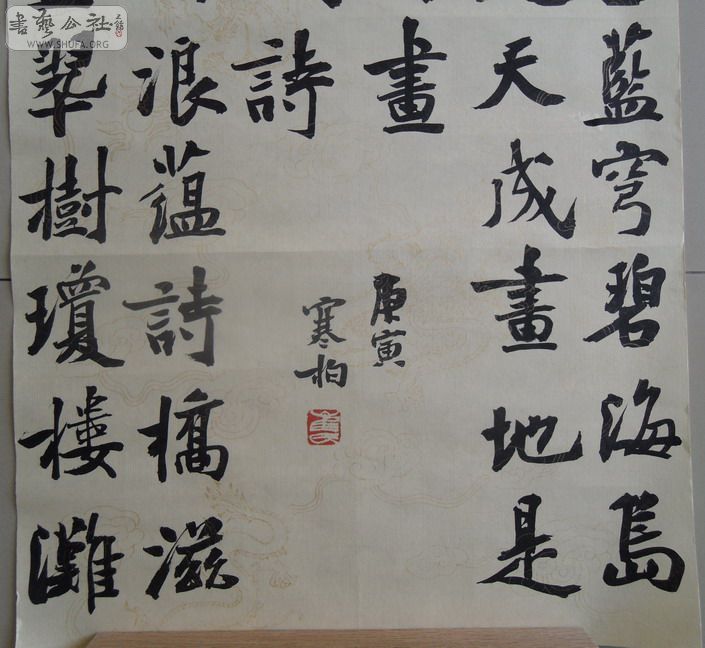 藍穹碧海島
天成畫地是
畫
詩
浪蘊詩橋滋
翠樹瓊樓灘
庚寅
寒柏
書藝公社
WWW.SHUFA.ORG